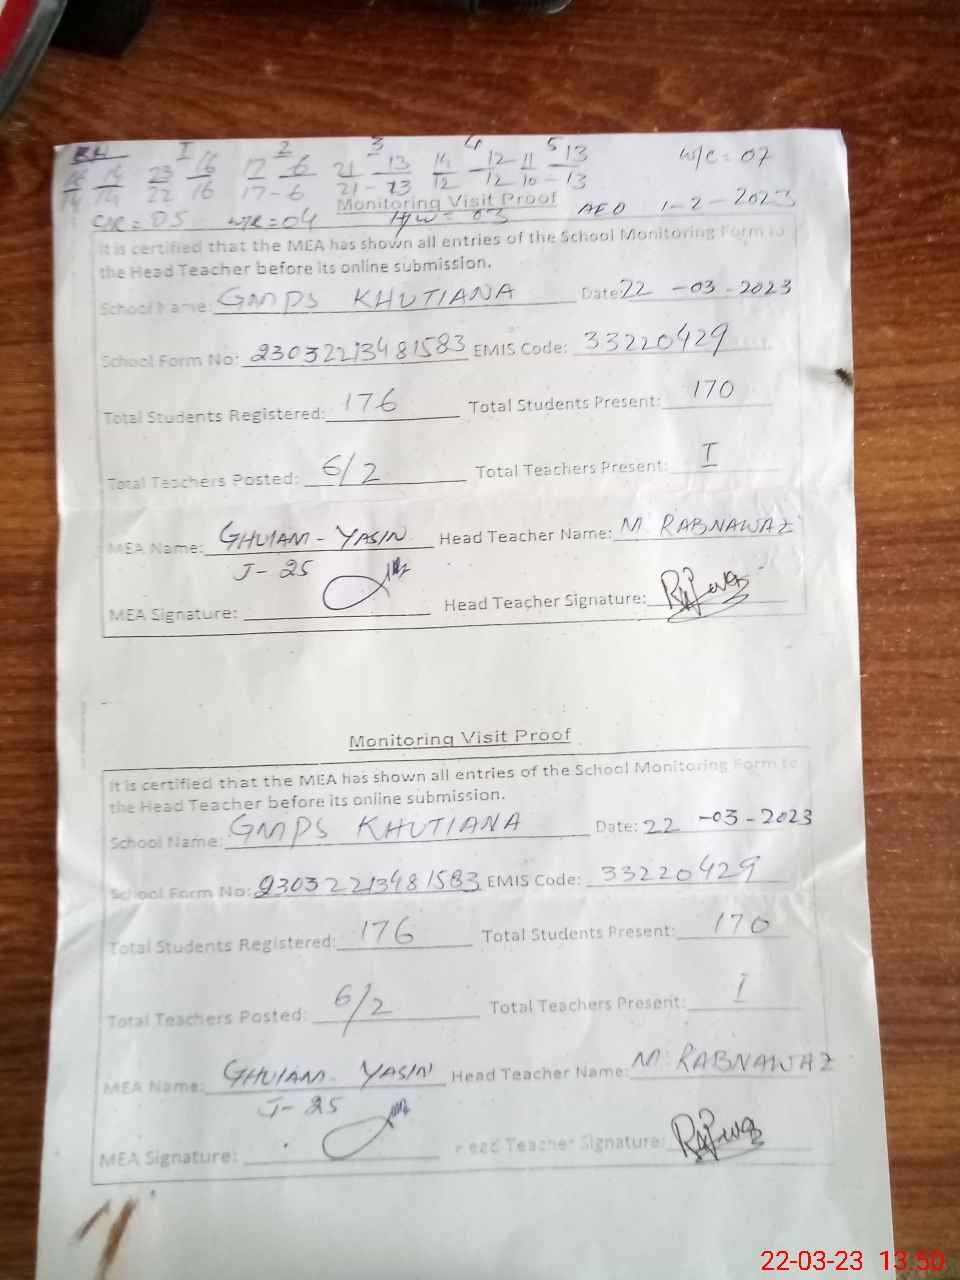 I 2 3 4 5
23 16 17 6 21 13 14 12 11 13 W/C = 07
22 16 17 - 6 21 - 13 12 12 10 - 13
Monitoring Visit Proof
C/R = 05 W/R = 04 H/W = 03 AEO 1-2-2023
It is certified that the MEA has shown all entries of the School Monitoring Form to
the Head Teacher before its online submission.
School Name: GMPS KHUTIANA Date: 22-03-2023
School Form No: 23032213481583 EMIS Code: 33220429
Total Students Registered: 176 Total Students Present: 170
Total Teachers Posted: 6/2 Total Teachers Present: I
MEA Name: GHULAM - YASIN Head Teacher Name: M. RABNAWAZ
J-25
MEA Signature: Head Teacher Signature:
Monitoring Visit Proof
It is certified that the MEA has shown all entries of the School Monitoring Form to
the Head Teacher before its online submission.
School Name: GMPS KHUTIANA Date: 22-03-2023
School Form No: 23032213481583 EMIS Code: 33220429
Total Students Registered: 176 Total Students Present: 170
Total Teachers Posted: 6/2 Total Teachers Present: I
MEA Name: GHULAM YASIN Head Teacher Name: M. RABNAWAZ
J-25
MEA Signature: Head Teacher Signature:
22-03-23 13:50